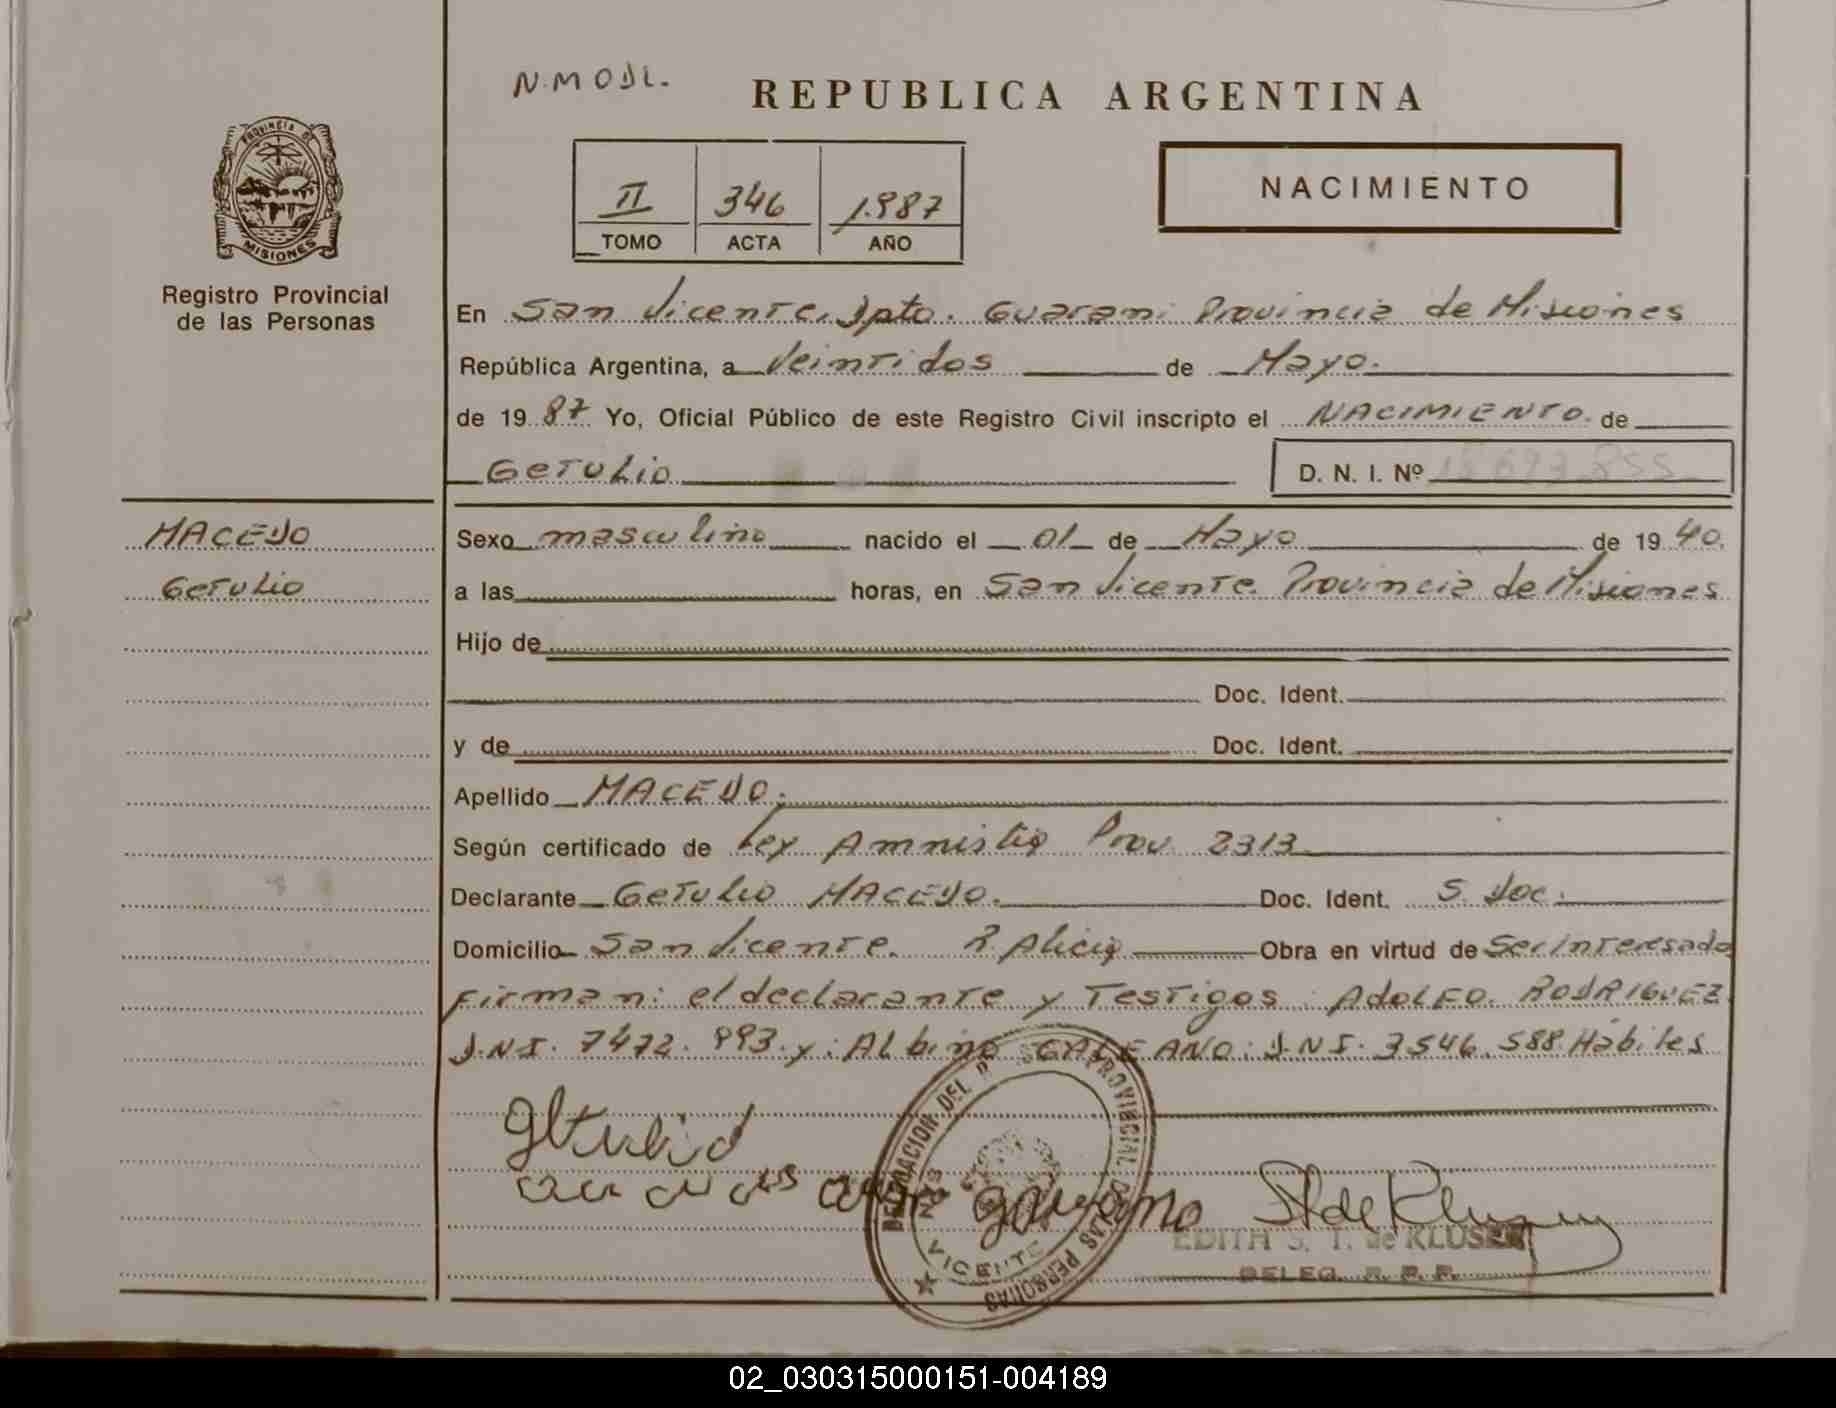 N.MODL.
REPUBLICA ARGENTINA
PROVINCIA DE
MISIONES
II 346 1.987
TOMO ACTA AÑO
NACIMIENTO
Registro Provincial
de las Personas
En San Vicente, Dpto. Guarani Provincia de Misiones
República Argentina, a Veintidos de Mayo.
de 19 87 Yo, Oficial Público de este Registro Civil inscripto el NACIMIENTO. de
Getulio D. N. I. Nº 18 693 855
MACEDO
Getulio
Sexo masculino nacido el 01 de Mayo de 19 40.
a las horas, en San Vicente. Provincia de Misiones
Hijo de
Doc. Ident.
y de Doc. Ident.
Apellido MACEDO.
Según certificado de Ley Amnistia Prov 2313
Declarante Getulio MACEDO. Doc. Ident. S. Doc.
Domicilio San Vicente. P. Alicia Obra en virtud de Ser Interesado
Firman: el declarante y Testigos Adolfo. RODRIGUEZ
D.N.I. 7472.993.y: Albino GALEANO: D.N.I. 3546.588 Hábiles
Getulio
galeano
DELEGACION DEL PROVINCIAL DE LAS PERSONAS
VICENTE
EDITH S. T. de KLUSENER
DELEG. R. P. P.
02_030315000151-004189